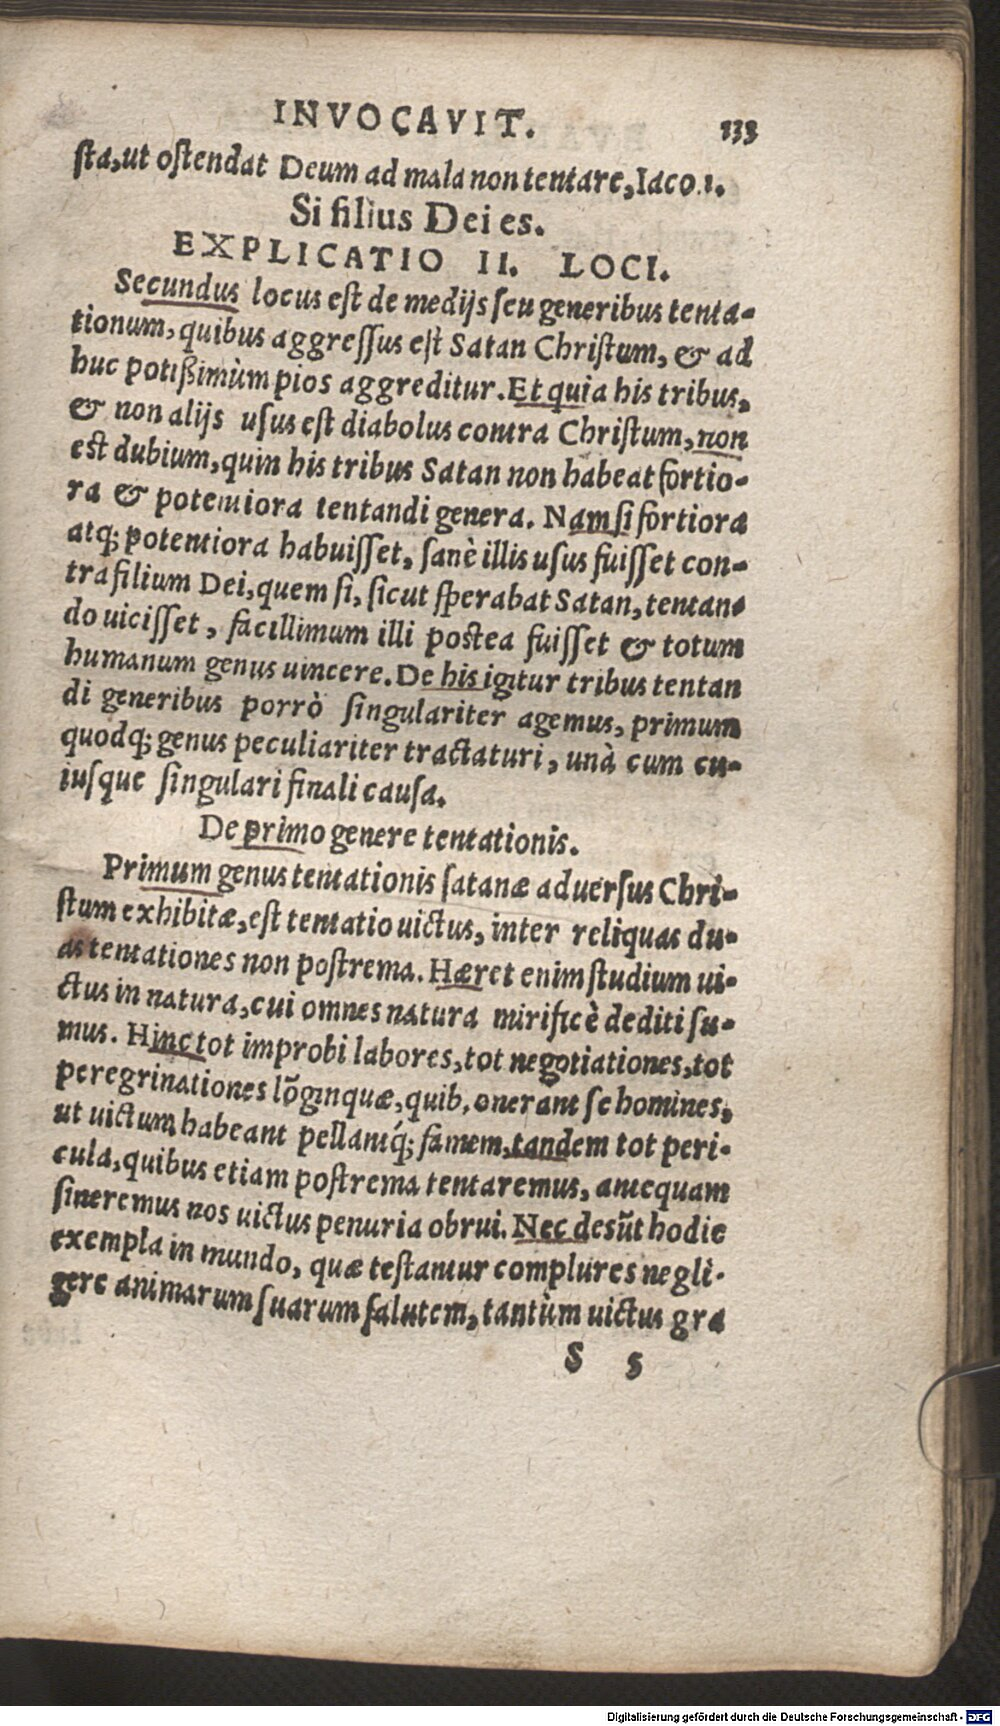 INVOCAVIT. 133
sta, ut ostendat Deum ad mala non tentare, Iaco. 1.
Si filius Dei es.
EXPLICATIO II. LOCI.
Secundus locus est de medijs seu generibus tenta-
tionum, quibus aggressus est Satan Christum, & ad
huc potißimùm pios aggreditur. Et quia his tribus,
& non alijs usus est diabolus contra Christum, non
est dubium, quin his tribus Satan non habeat fortio-
ra & potentiora tentandi genera. Nam si fortiora
atq; potentiora habuisset, sanè illis usus fuisset con-
tra filium Dei, quem si, sicut sperabat Satan, tentan-
do uicisset, facillimum illi postea fuisset & totum
humanum genus uincere. De his igitur tribus tentan
di generibus porrò singulariter agemus, primum
quodq; genus peculiariter tractaturi, unà cum cu-
iusque singulari finali causa.
De primo genere tentationis.
Primum genus tentationis satanæ aduersus Chri-
stum exhibitæ, est tentatio uictus, inter reliquas du-
as tentationes non postrema. Hæret enim studium ui-
ctus in natura, cui omnes natura mirificè dediti su-
mus. Hinc tot improbi labores, tot negotiationes, tot
peregrinationes lõginquæ, quib. onerant se homines,
ut uictum habeant pellantq́; famem, tandem tot peri-
cula, quibus etiam postrema tentaremus, antequam
sineremus nos uictus penuria obrui. Nec desũt hodie
exempla in mundo, quæ testantur complures negli-
gere animarum suarum salutem, tantùm uictus gra
S 5
Digitalisierung gefördert durch die Deutsche Forschungsgemeinschaft - DFG